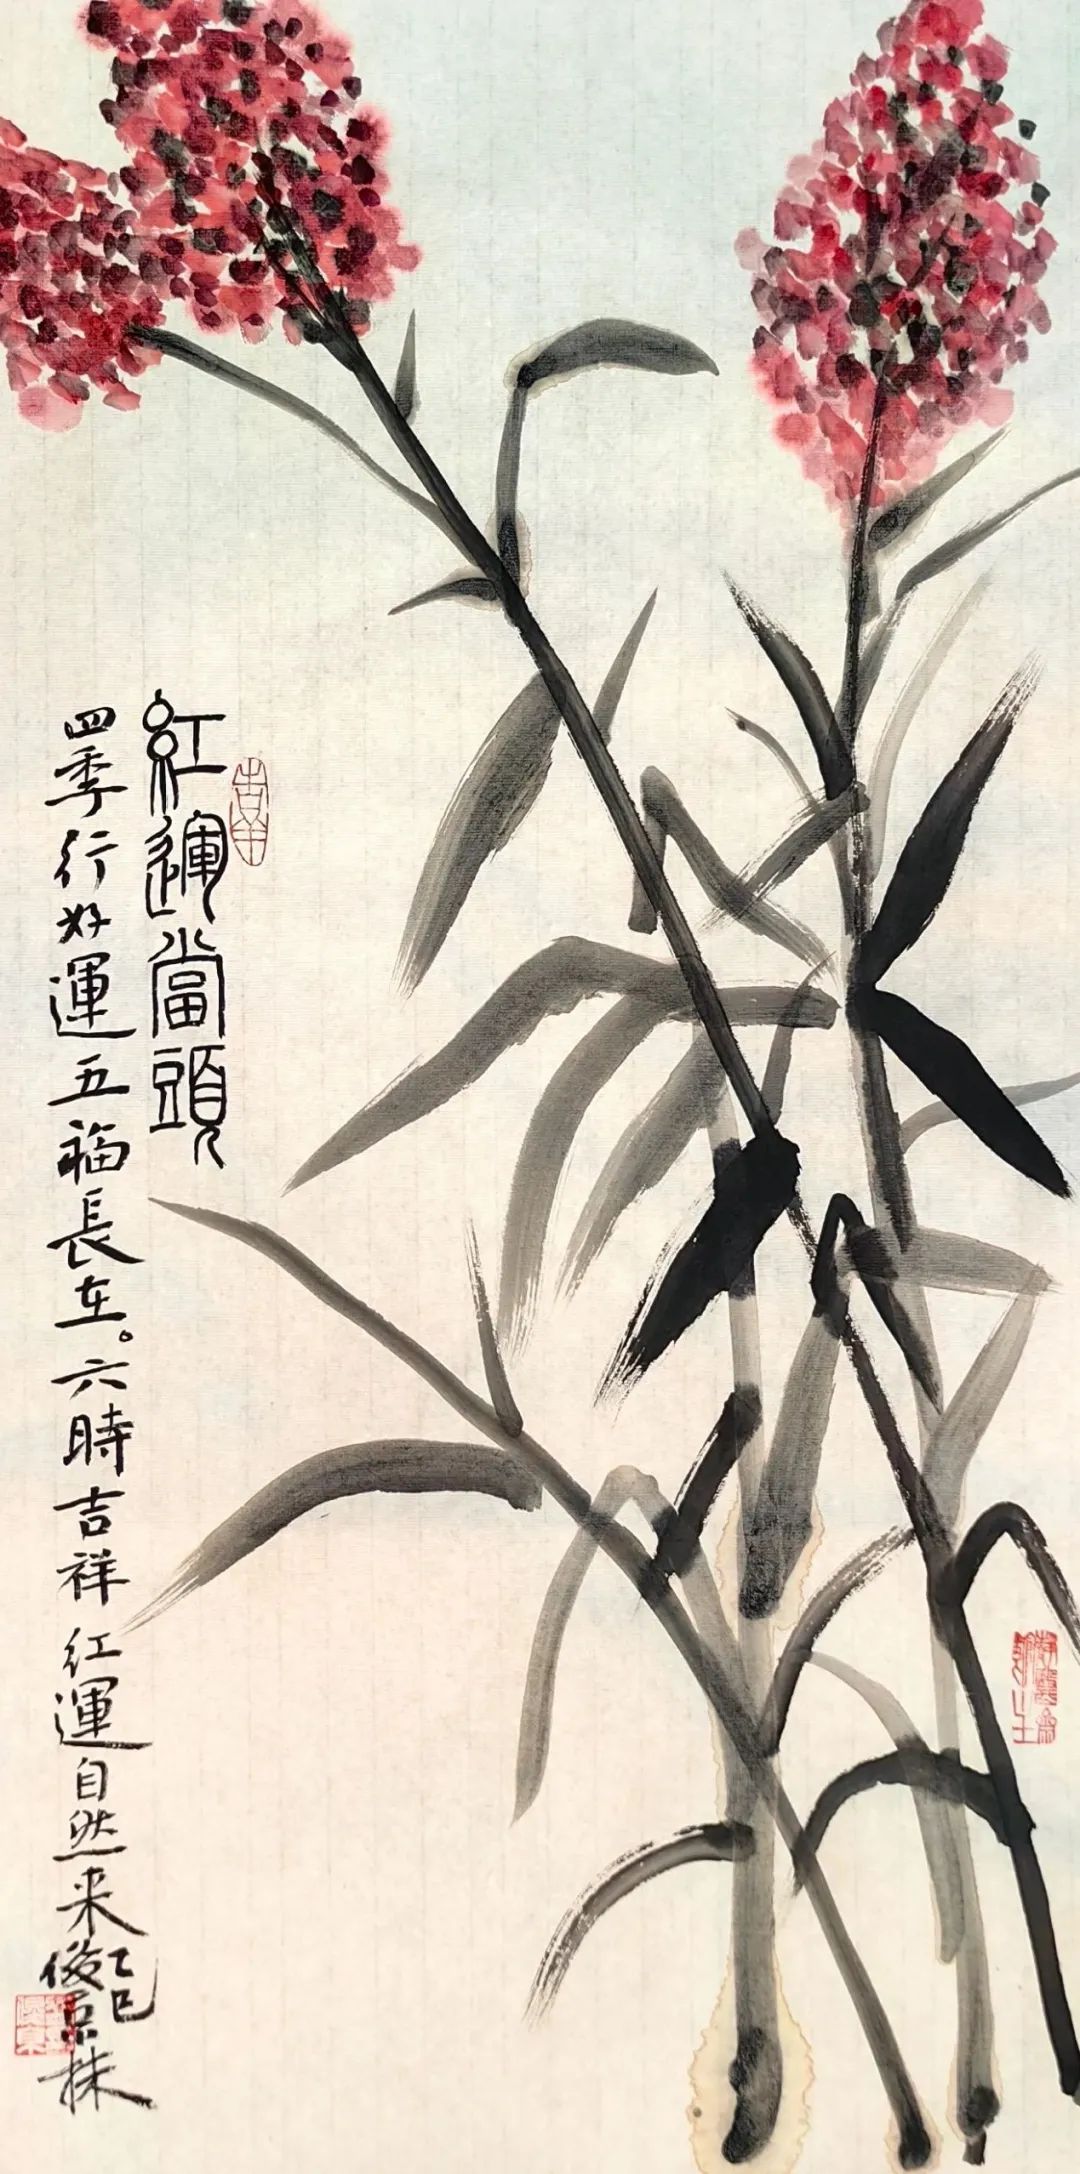 紅運當頭
四季行好運五福長在。六時吉祥紅運自然来
乙巳
俊京